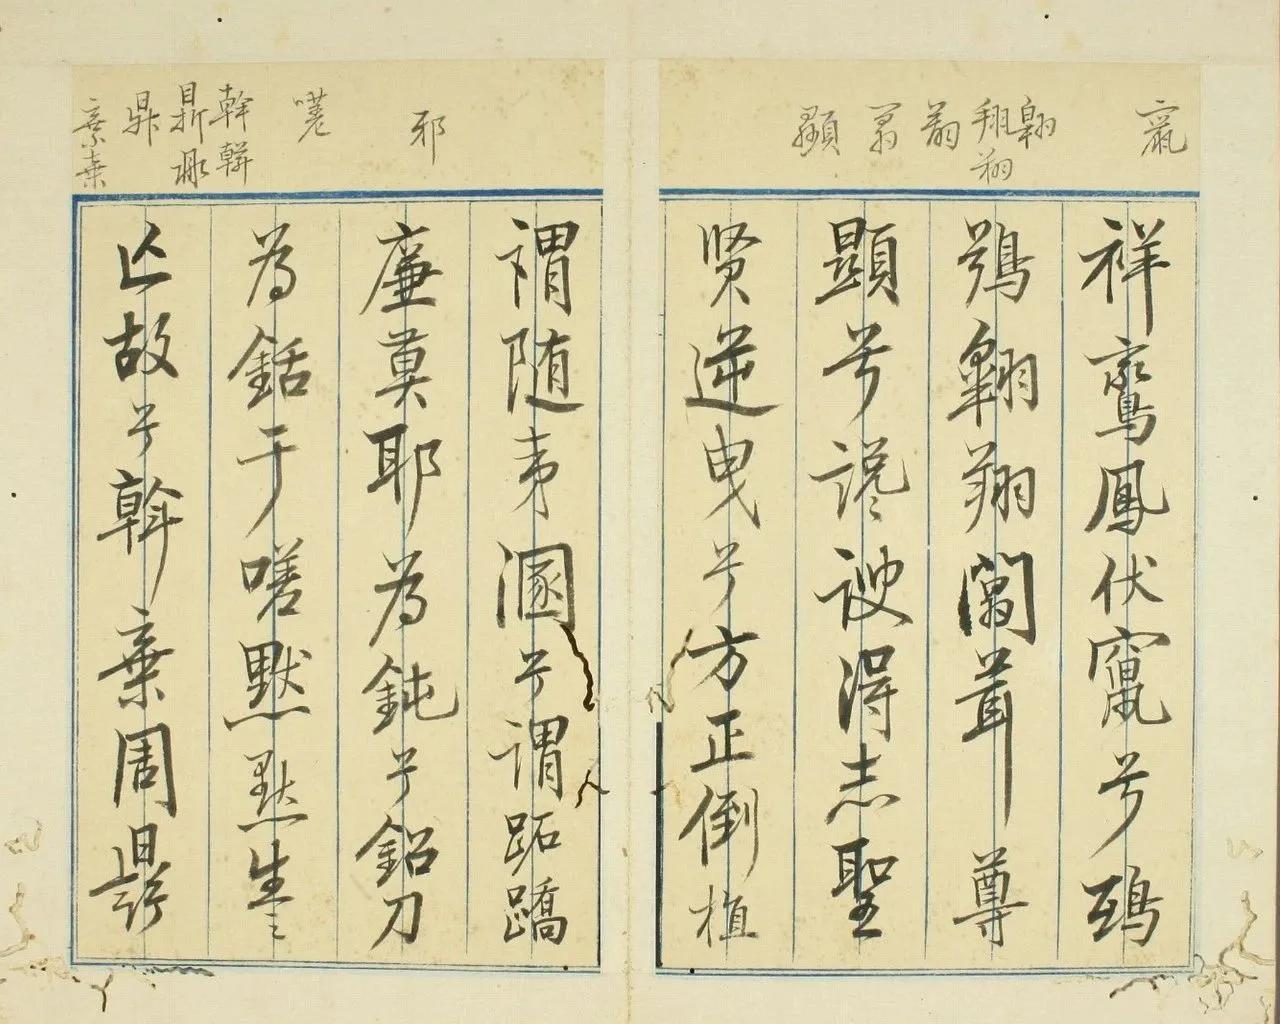 竄
翱
翔
翔
顯
祥鸞鳳伏竄兮鴟
鴞翱翔闒茸尊
顯兮讒諛得志聖
贤逆曳兮方正倒植
邪
嗟
斡
鼎
棄
謂随夷溷兮謂跖蹻
廉莫耶為鈍兮鉛刀
為銛于嗟默默生之
亾故兮斡棄周鼎